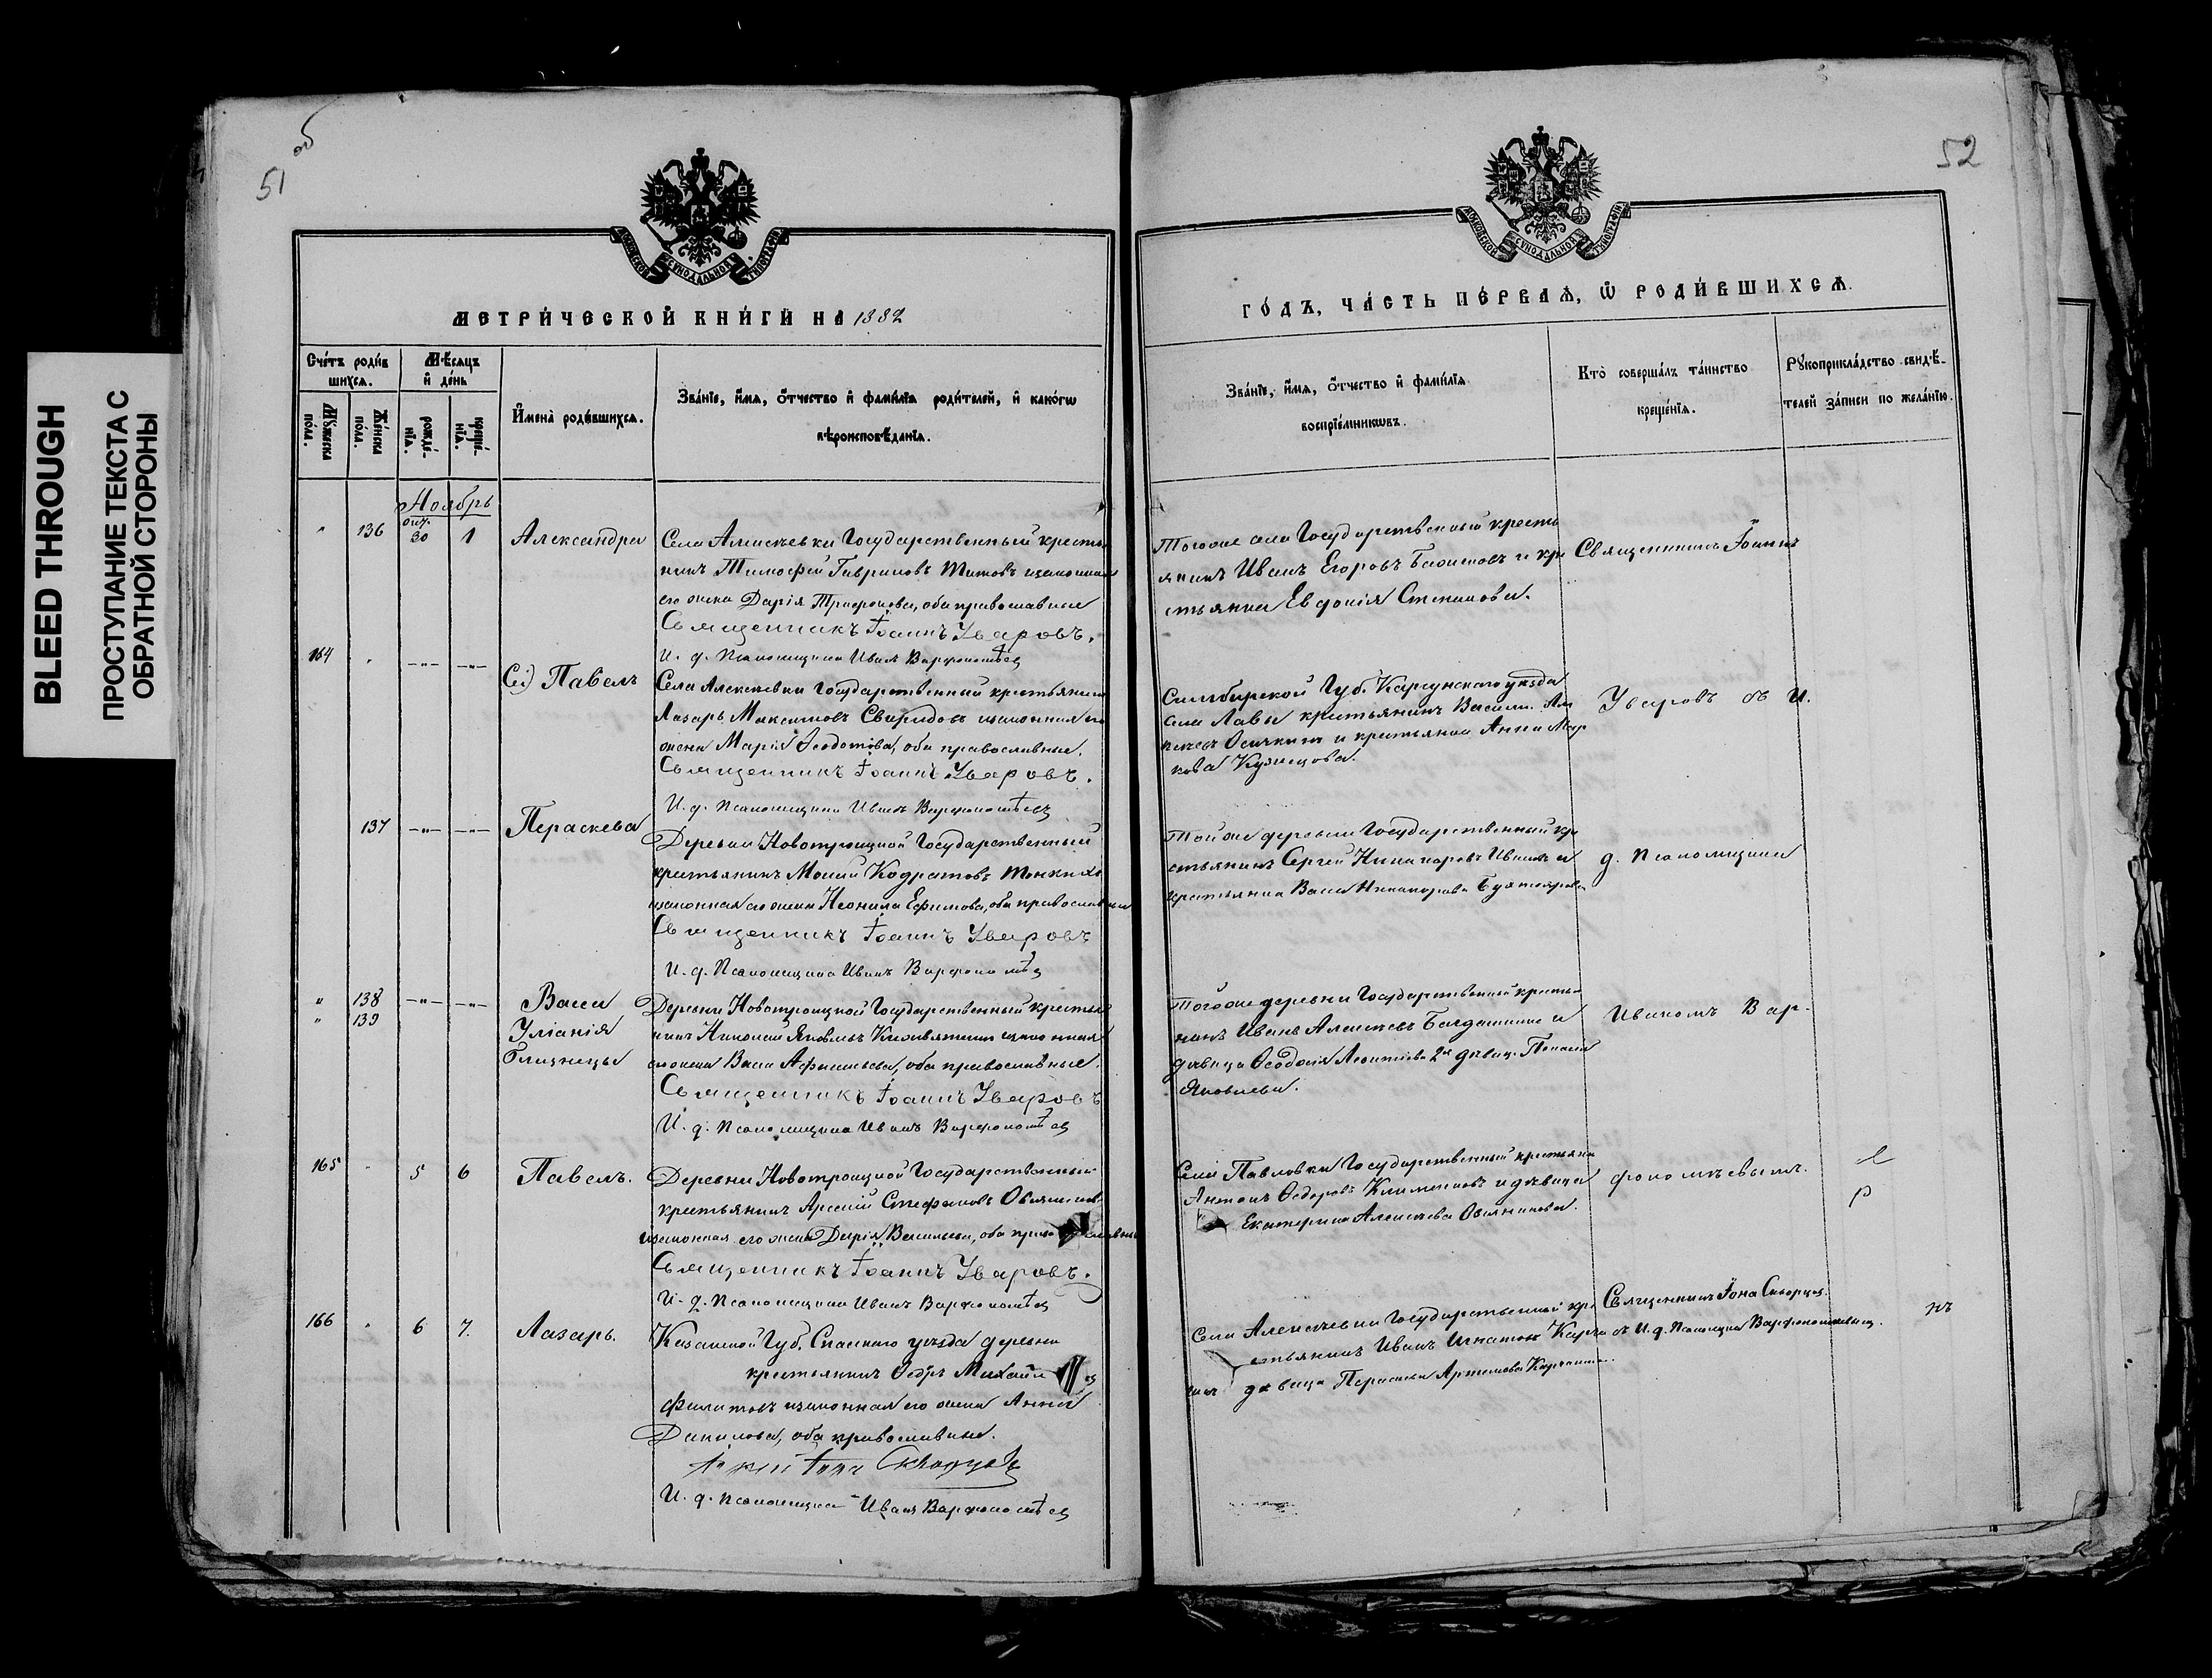 BLEED THROUGH
ПРОСТУПАНИЕ ТЕКСТА С
ОБРАТНОЙ СТОРОНЫ
51 об
МОСКОВСКОЙ СУНОДАЛЬНОЙ ТИПОГРАФІИ
МЕТРИ́ЧЕСКОЙ КНИ́ГИ НА 1882
Сче́тъ роди́в
шихсѧ.
Мѣ́сѧцъ
и҆ де́нь
И҆мена̀ роди́вшихсѧ.
Зва́нїе, и҆́мѧ, ѻ҆́тчество и҆ фами́лїѧ роди́телей, и҆ како́гѡ
вѣроисповѣ́данїѧ.
Мꙋ́жеска
по́ла.
Же́нска
по́ла.
рожде́-
нїѧ.
креще́-
нїѧ.
Ноябрь
" 136 Окт. 30 1 Александра
Села Алексѣевки Государственный крестья
нинъ Тимофей Гавриловъ Титовъ законная
его жена Дарія Трифонова, оба православные
Священникъ Іоаннъ Уваровъ.
И. д. Псаломщика Иванъ Варфоломѣевъ
164 " —"— —"— Павелъ
Села Алексѣевки Государственный крестьянинъ
Лазарь Максимовъ Свиридовъ законная его
жена Марія Ѳеодотова, оба православные.
Священникъ Іоаннъ Уваровъ.
И. д. Псаломщика Иванъ Варфоломѣевъ
137 —"— —"— Параскева
Деревни Новотроицкой Государственный
крестьянинъ Моисей Кодратовъ Тонкихъ
законная его жена Неонила Ефимова, оба православные
Священникъ Іоаннъ Уваровъ
И. д. Псаломщика Иванъ Варфоломѣевъ
" 138 —"— —"— Васса
" 139 Уліанія
близнецы
Деревни Новотроицкой Государственный крестья
нинъ Николай Яковлевъ законная
его жена Васса Афанасьева, оба православные.
Священникъ Іоаннъ Уваровъ
И. д. Псаломщика Иванъ Варфоломѣевъ
165 " 5 6 Павелъ.
Деревни Новотроицкой Государственный
крестьянинъ Арсеній Стефановъ Овсянниковъ
законная его жена Дарія Васильева, оба православные
Священникъ Іоаннъ Уваровъ.
И. д. Псаломщика Иванъ Варфоломѣевъ
166 " 6 7. Лазарь.
Казанской Губ. Спасскаго уѣзда деревни
крестьянинъ Ѳедръ Михайловъ
Филатовъ законная его жена Анна
Данилова, оба православные.
Іона Скворцовъ
И. д. псаломщика Иванъ Варфоломѣевъ
52
МОСКОВСКОЙ СУНОДАЛЬНОЙ ТИПОГРАФІИ
ГО́ДЪ, ЧА́СТЬ ПЕ́РВАѦ, Ѡ҆ РОДИ́ВШИХСѦ.
Зва́нїе, и҆́мѧ, ѻ҆́тчество и҆ фами́лїѧ
воспрїе́мниковъ.
Кто̀ соверша́лъ та́инство
креще́нїѧ.
Рꙋкоприкла́дство свидѣ́-
телей за́писи по жела́нїю.
Тогоже села Государственный кресть
янинъ Иванъ Егоровъ и кре
стьянка Евдокія Степанова.
Священникъ Іоаннъ
Симбирской Губ. Карсунскаго уѣзда
села Лавы крестьянинъ Василій Але
ксѣевъ Осичкинъ и крестьянка Анна Мар
кова Кузнецова.
Уваровъ съ И.
Той же деревни Государственный кре
стьянинъ Сергей Никаноровъ и
крестьянка Васса Никанорова
д. Псаломщика
Тогоже деревни Государственный крестья
нинъ Иванъ Алексѣевъ и
дѣвица Ѳеодосія Леонтіева 2я дѣвица Пелагея
Яковлева.
Иваномъ Вар-
Села Павловки Государственный крестьянинъ
Антонъ Ѳедоровъ Климентовъ и дѣвица
Екатерина Алексѣева Овсянникова.
фоломѣевымъ.
Села Алексѣевки Государственный кре
стьянинъ Иванъ Игнатовъ
дѣвица Параскева Артемова
Священникъ Іона Скворцовъ
съ И. д. Псаломщика Варфоломѣевымъ.